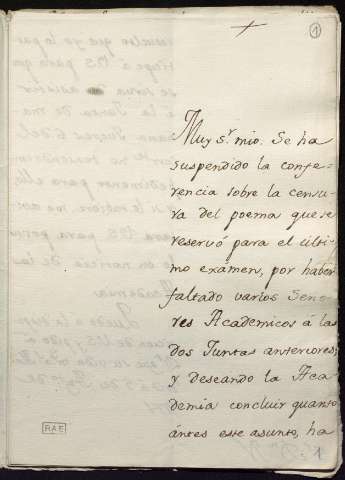 1
Muy s.r mio. Se ha
suspendido la confe-
rencia sobre la censu-
ra del poema que se
reservó para el últi-
mo examen, por haber
faltado varios Seno-
res Academicos á las
dos Juntas anteriores;
y deseando la Aca-
demia concluir quanto
ántes este asunto, ha
RAE
1